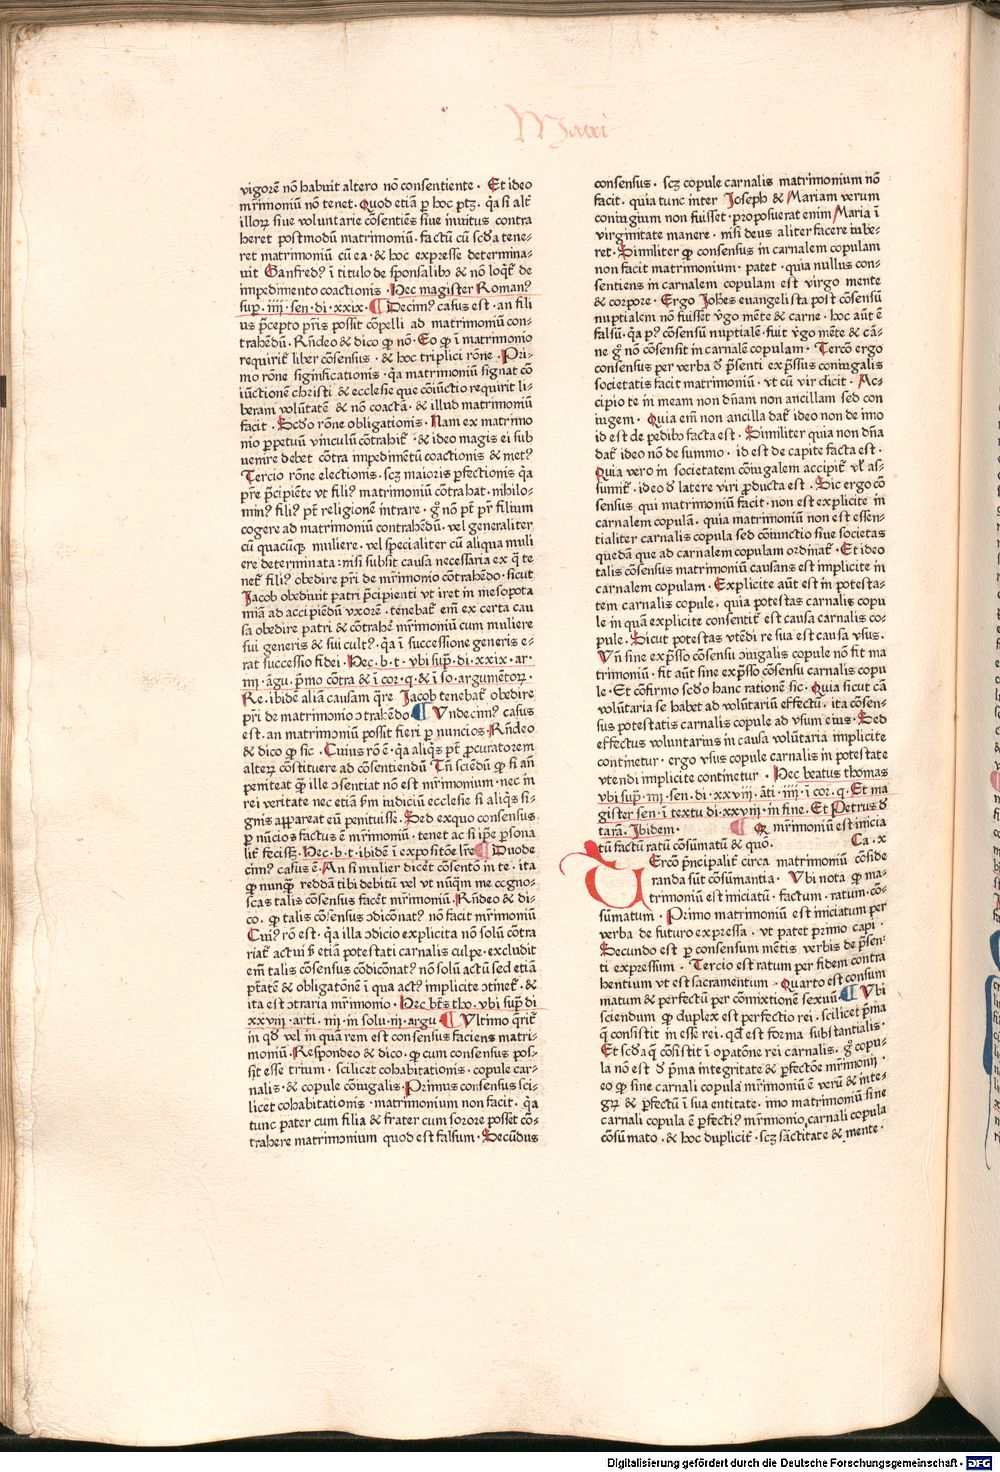 Matri
vigorē nō habuit altero nō consentiente · Et ideo
mr̄imoniū nō tenet · Quod etiā p hoc ptꝫ · qa si alt̄
illoꝝ siue voluntarie cōsentiēs siue inuitus contra
heret postmodū matrimoniū · factū cū scd̄a tene⸗
ret matrimoniū cū ea · & hoc expresse determina⸗
uit Ganfredꝰ ī titulo de sponsalibꝰ & nō loqt̄ de
impedimento coactionis · Hec magister Romanꝰ
suꝑ · iiii · sen · di · xxix · ¶ Decimꝰ casus est · an fili
us p̄cepto pr̄is possit cōpelli ad matrimoniū con⸗
trahēdū · Rn̄deo & dico ꝙ nō · Eo ꝙ ī matrimonio
requirit̄ liber cōsensus · & hoc triplici rōne · Pri⸗
mo rōne significationis · qa matrimoniū signat cō
iūctionē christi & ecclesie que cōiūctio requirit li⸗
beram volūtatē & nō coactā · & illud matrimoniū
facit · Scd̄o rōne obligationis · Nam ex matrimo
nio ꝑpetuū vinculū cōtrahit̄ · & ideo magis ei sub
uenire debet cōtra impedimētū coactionis & metꝰ
Tercio rōne electionis · scꝫ maioris ꝑfectionis qa
pr̄e p̄cipiēte vt filiꝰ matrimoniū cōtrahat · nihilo⸗
minꝰ filiꝰ pt̄ religionē intrare · g̊ nō pt̄ pr̄ filium
cogere ad matrimoniū contrahēdū · vel generaliter
cū quacūqꝫ muliere · vel specialiter cū aliqua muli
ere determinata : nisi subsit causa necessaria ex q̄ te
net̄ filiꝰ obedire pr̄i de mr̄imonio cōtrahēdo · sicut
Jacob obediuit patri p̄cipienti vt iret in mesopota
miā ad accipiēdū vxorē · tenebat̄ em̄ ex certa cau
sa obedire patri & cōtrahe̍ mr̄imoniū cum muliere
sui generis & sui cultꝰ · qa ī successione generis e⸗
rat successio fidei · Hec · b · t · vbi suꝑ · di · xxix · ar·
iiij · āgu · p̄mo cōtra & ī cor · q · & ī so · argumētoꝝ ·
Re · ibidē aliā causam qre Jacob tenebat̄ obedire
pr̄i de matrimonio ↄtrahēdo ¶ Vndecimꝰ casus
est · an matrimoniū possit fieri ꝑ nuncios · Rn̄deo
& dico ꝙ sic · Cuius rō ē · qa aliqs pt̄ ꝓcuratorem
alteꝝ cōstituere ad cōsentiendū Tn̄ sciēdū ꝙ si an̄
peniteat qͥ ille ↄsentiat nō est mr̄imonium · nec in
rei veritate nec etiā ẜm iudiciū ecclesie si aliqs si⸗
gnis appareat eū penituisse · Sed exquo consensus
ꝑ nūcios factus ē mr̄imoniū · tenet ac si ip̄e ꝑsona
lit̄ fecissꝫ · Hec · b · t · ibidē ī expositōe lr̄e ¶ Duode
cimꝰ casus ē · An si mulier dicēt cōsento in te · ita
ꝙ nunqꝫ reddā tibi debitū vel vt nūqͣm me cogno⸗
scas talis cōsensus facēt mr̄imoniū · Rn̄deo & di⸗
co · ꝙ talis cōsensus ↄdiconatꝰ nō facit mr̄imoniū
Cuiꝰ rō est · qa illa ↄdicio explicita nō solū cōtra
riat̄ actui s̄ etiā potestati carnalis culpe · excludit
em̄ talis cōsensus cōdicōnatꝰ nō solū actū sed etiā
p̄tatē & obligatōnē ī qua actꝰ implicite ↄtinet̄ · &
ita est ↄtraria mr̄imonio · Hec bt̄s tho · vbi suꝑ di
xxviij · arti · iiij · in solu · iij · argu · ¶ Vltimo qrit̄
in qd̄ vel in quā rem est consensus faciens matri⸗
moniū · Respondeo & dico · ꝙ cum consensus pos⸗
sit esse trium · scilicet cohabitationis · copule car⸗
nalis · & copule cōiugalis · Primus consensus sci⸗
licet cohabitationis · matrimonium non facit · qa
tunc pater cum filia & frater cum sorore posset cō⸗
trahere matrimonium quod est falsum · Secūdus
consensus · scꝫ copule carnalis matrimonium nō
facit · quia tunc inter Joseph & Mariam verum
coniugium non fuisset · proposuerat enim Maria ī
virginitate manere · nisi deus aliter facere iube⸗
ret · Similiter ꝙ consensus in carnalem copulam
non facit matrimonium · patet · quia nullus con⸗
sentiens in carnalem copulam est virgo mente
& corpore · Ergo Joh̄es euangelista post cōsensū
nuptialem nō fuisset v̓go mēte & carne · hoc aūt ē
falsū · qa pꝰ cōsensū nuptialē · fuit v̓go mēte & cā⸗
ne g̊ nō cōsensit in carnalē copulam · Tercō ergo
consensus per verba d̓ p̄senti exp̄ssus coniugalis
societatis facit matrimoniū · vt cū vir dicit · Ac⸗
cipio te in meam non dn̄am non ancillam sed con
iugem · Quia em̄ non ancilla dat̄ ideo non de imo
id est de pedibꝰ facta est · Similiter quia non dn̄a
dat̄ ideo nō de summo · id est de capite facta est ·
Quia vero in societatem cōiugalem accipit̄ vl̓ as⸗
sumit̄ · ideo d̓ latere viri ꝓducta est · Sic ergo cō
sensus qui matrimoniū facit · non est explicite in
carnalem copulā · quia matrimoniū non est essen⸗
tialiter carnalis copula sed cōiunctio siue societas
quedā que ad carnalem copulam ordinat̄ · Et ideo
talis cōsensus matrimoniū causans est implicite in
carnalem copulam · Explicite aūt est in potesta⸗
tem carnalis copule · quia potestas carnalis copu
le in quā explicite consentit̄ est causa carnalis co⸗
pule · Sicut potestas vtēdi re sua est causa vsus ·
Vn̄ sine exp̄sso cōsensu ↄiugalis copule nō fit ma
trimoniū · fit aūt sine exp̄sso cōsensu carnalis copu
le · Et cōfirmo scd̄o hanc rationē sic · Quia sicut cā
volūtaria se habet ad volūtariū effectū · ita cōsen⸗
sus potestatis carnalis copule ad vsum eius · Sed
effectus voluntarius in causa volūtaria implicite
continetur · ergo vsus copule carnalis in potestate
vtendi implicite continetur · Hec beatus thomas
vbi suꝑ · iiij · sen · di · xxviij · āti · iiij · ī cor · q · Et ma
gister sen · ī textu di · xxviij · in fine · Et Petrus d̓
tarā · Ibidem · ¶ Qꝛ mr̄imoniū est inicia
tū factū ratū cōsūmatū & quō · Ca · x
TErcō p̄ncipalit̄ circa matrimoniū cōside
randa sūt cōsūmantia · Vbi nota ꝙ ma⸗
trimoniū est iniciatū · factum · ratum · cō⸗
sūmatum · Primo matrimoniū est iniciatum per
verba de futuro expressa · vt patet primo capi ·
Secundo est ꝑ consensum mētis verbis de p̄sen⸗
ti expressim · Tercio est ratum per fidem contra
hentium vt est sacramentum · Quarto est consum
matum & perfectū per cōmixtionē sexuū ¶ Vbi
sciendum ꝙ duplex est perfectio rei · scilicet p̄ma
q̄ consistit in esse rei · qd̄ est forma substantialis ·
Et scd̄a q̄ cōsistit ī oꝑatōne rei carnalis · g̊ copu⸗
la nō est d̓ p̄ma integritate & ꝑfectōe mr̄imonij ·
eo ꝙ sine carnali copula mr̄imoniū ē verū & inte⸗
gꝝ & ꝑfectū ī sua entitate · imo matrimoniū sine
carnali copula ē ꝑfectiꝰ mr̄imonio carnali copula
cōsūmato · & hoc duplicit̄ · scꝫ sāctitate & mente ·
Digitalisierung gefördert durch die Deutsche Forschungsgemeinschaft - DFG